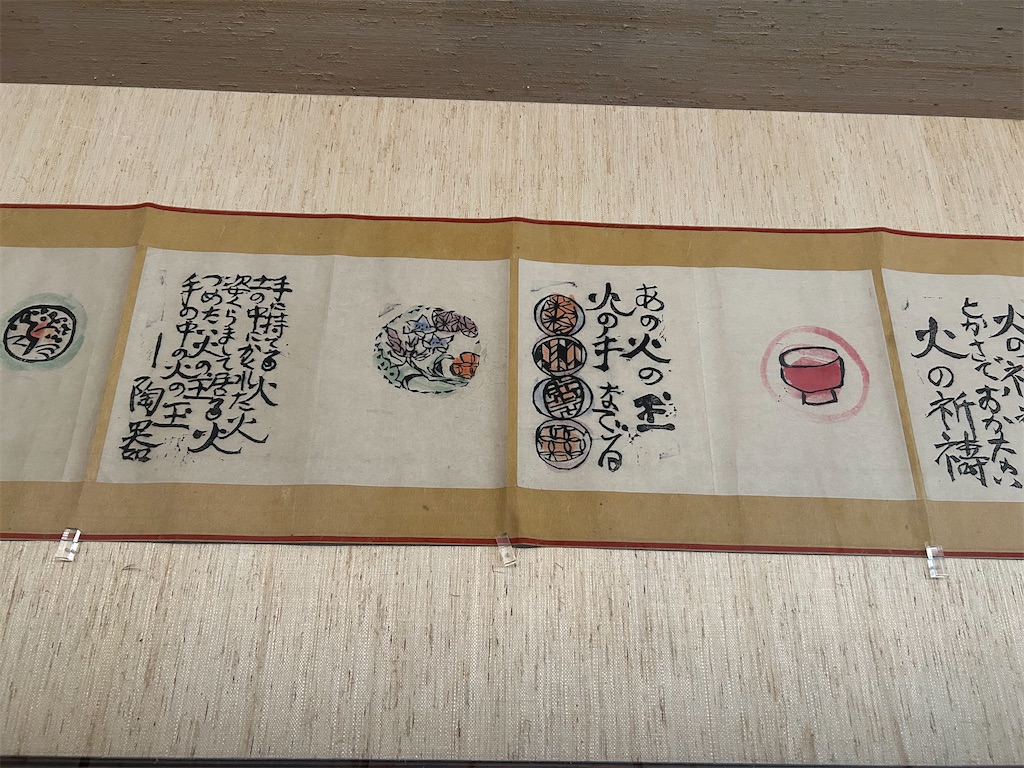 とかさでおかない
火の祈祷
あの火の玉
火の手なでいる
手に持てる火
土の中にかくれた火
姿くらまして居る火
つめたい火の玉
手の中の火の玉
―陶器